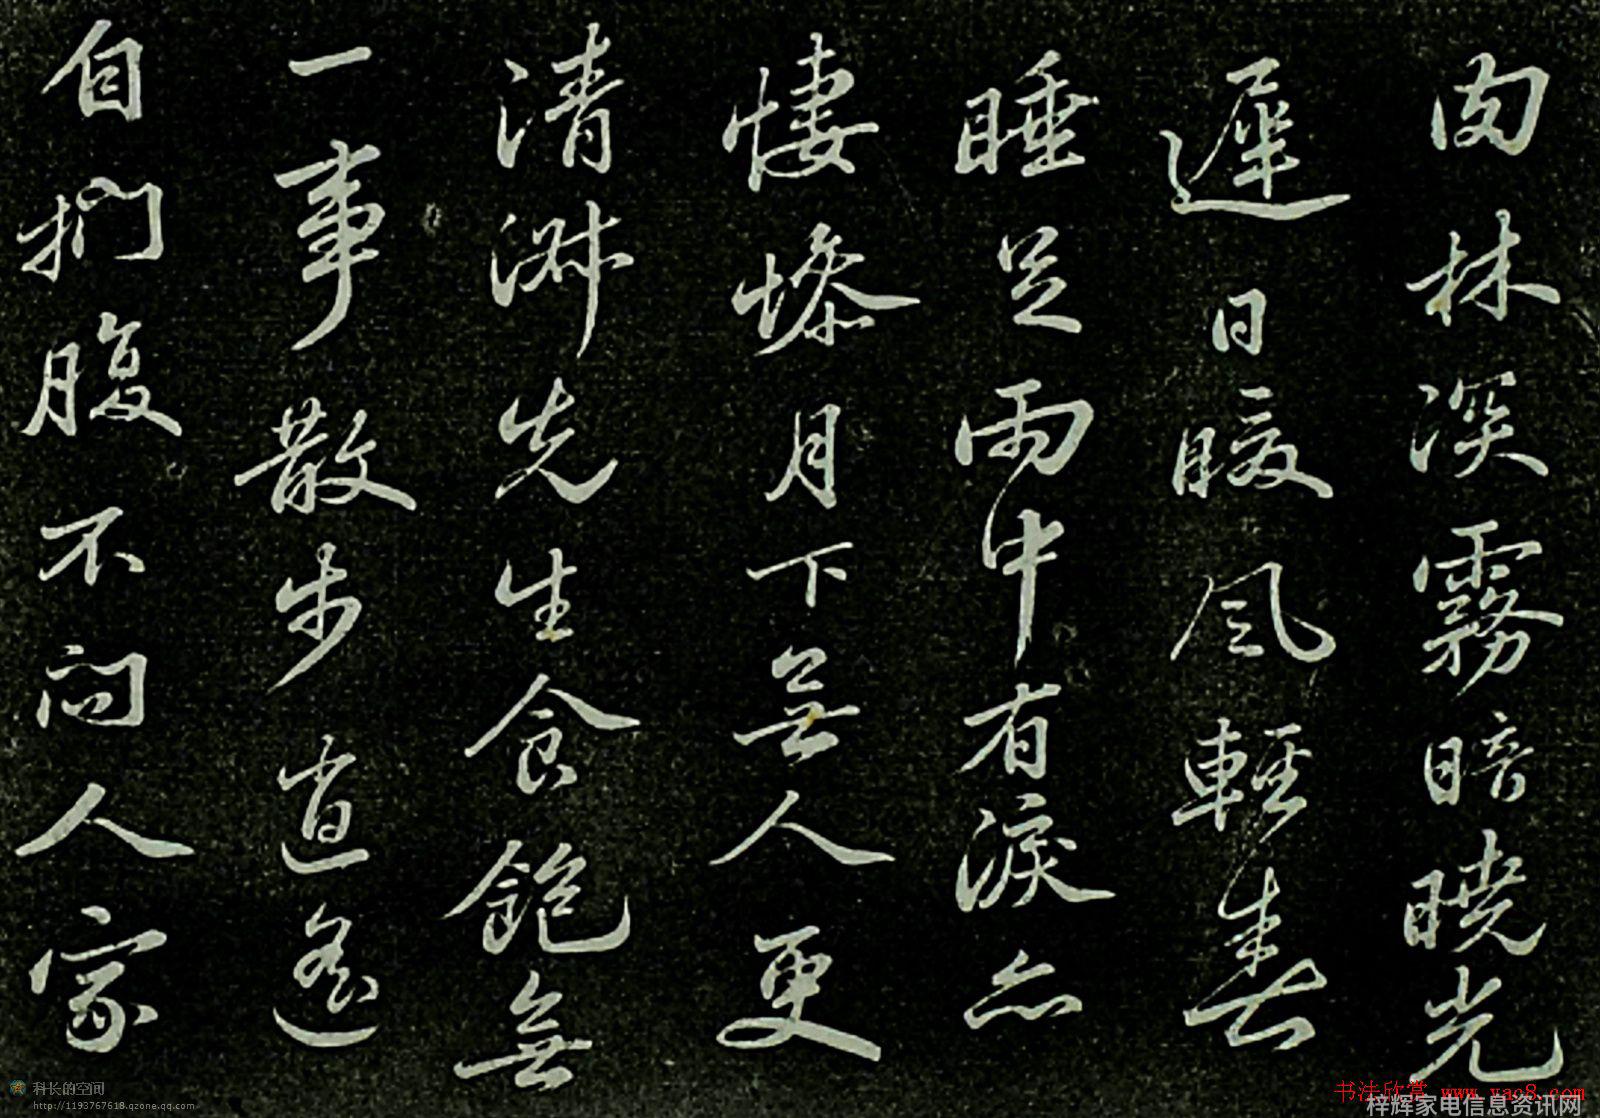 肉林深霧暗曉光
遲日暖風輕春
睡足雨中有淚亦
悽慘月下無人更
清淑先生食飽無
一事散步逍遙
自捫腹不問人家
科长的空间
http://1193767618.qzone.qq.com
书法欣赏 www.yac8.com
梓辉家电信息资讯网